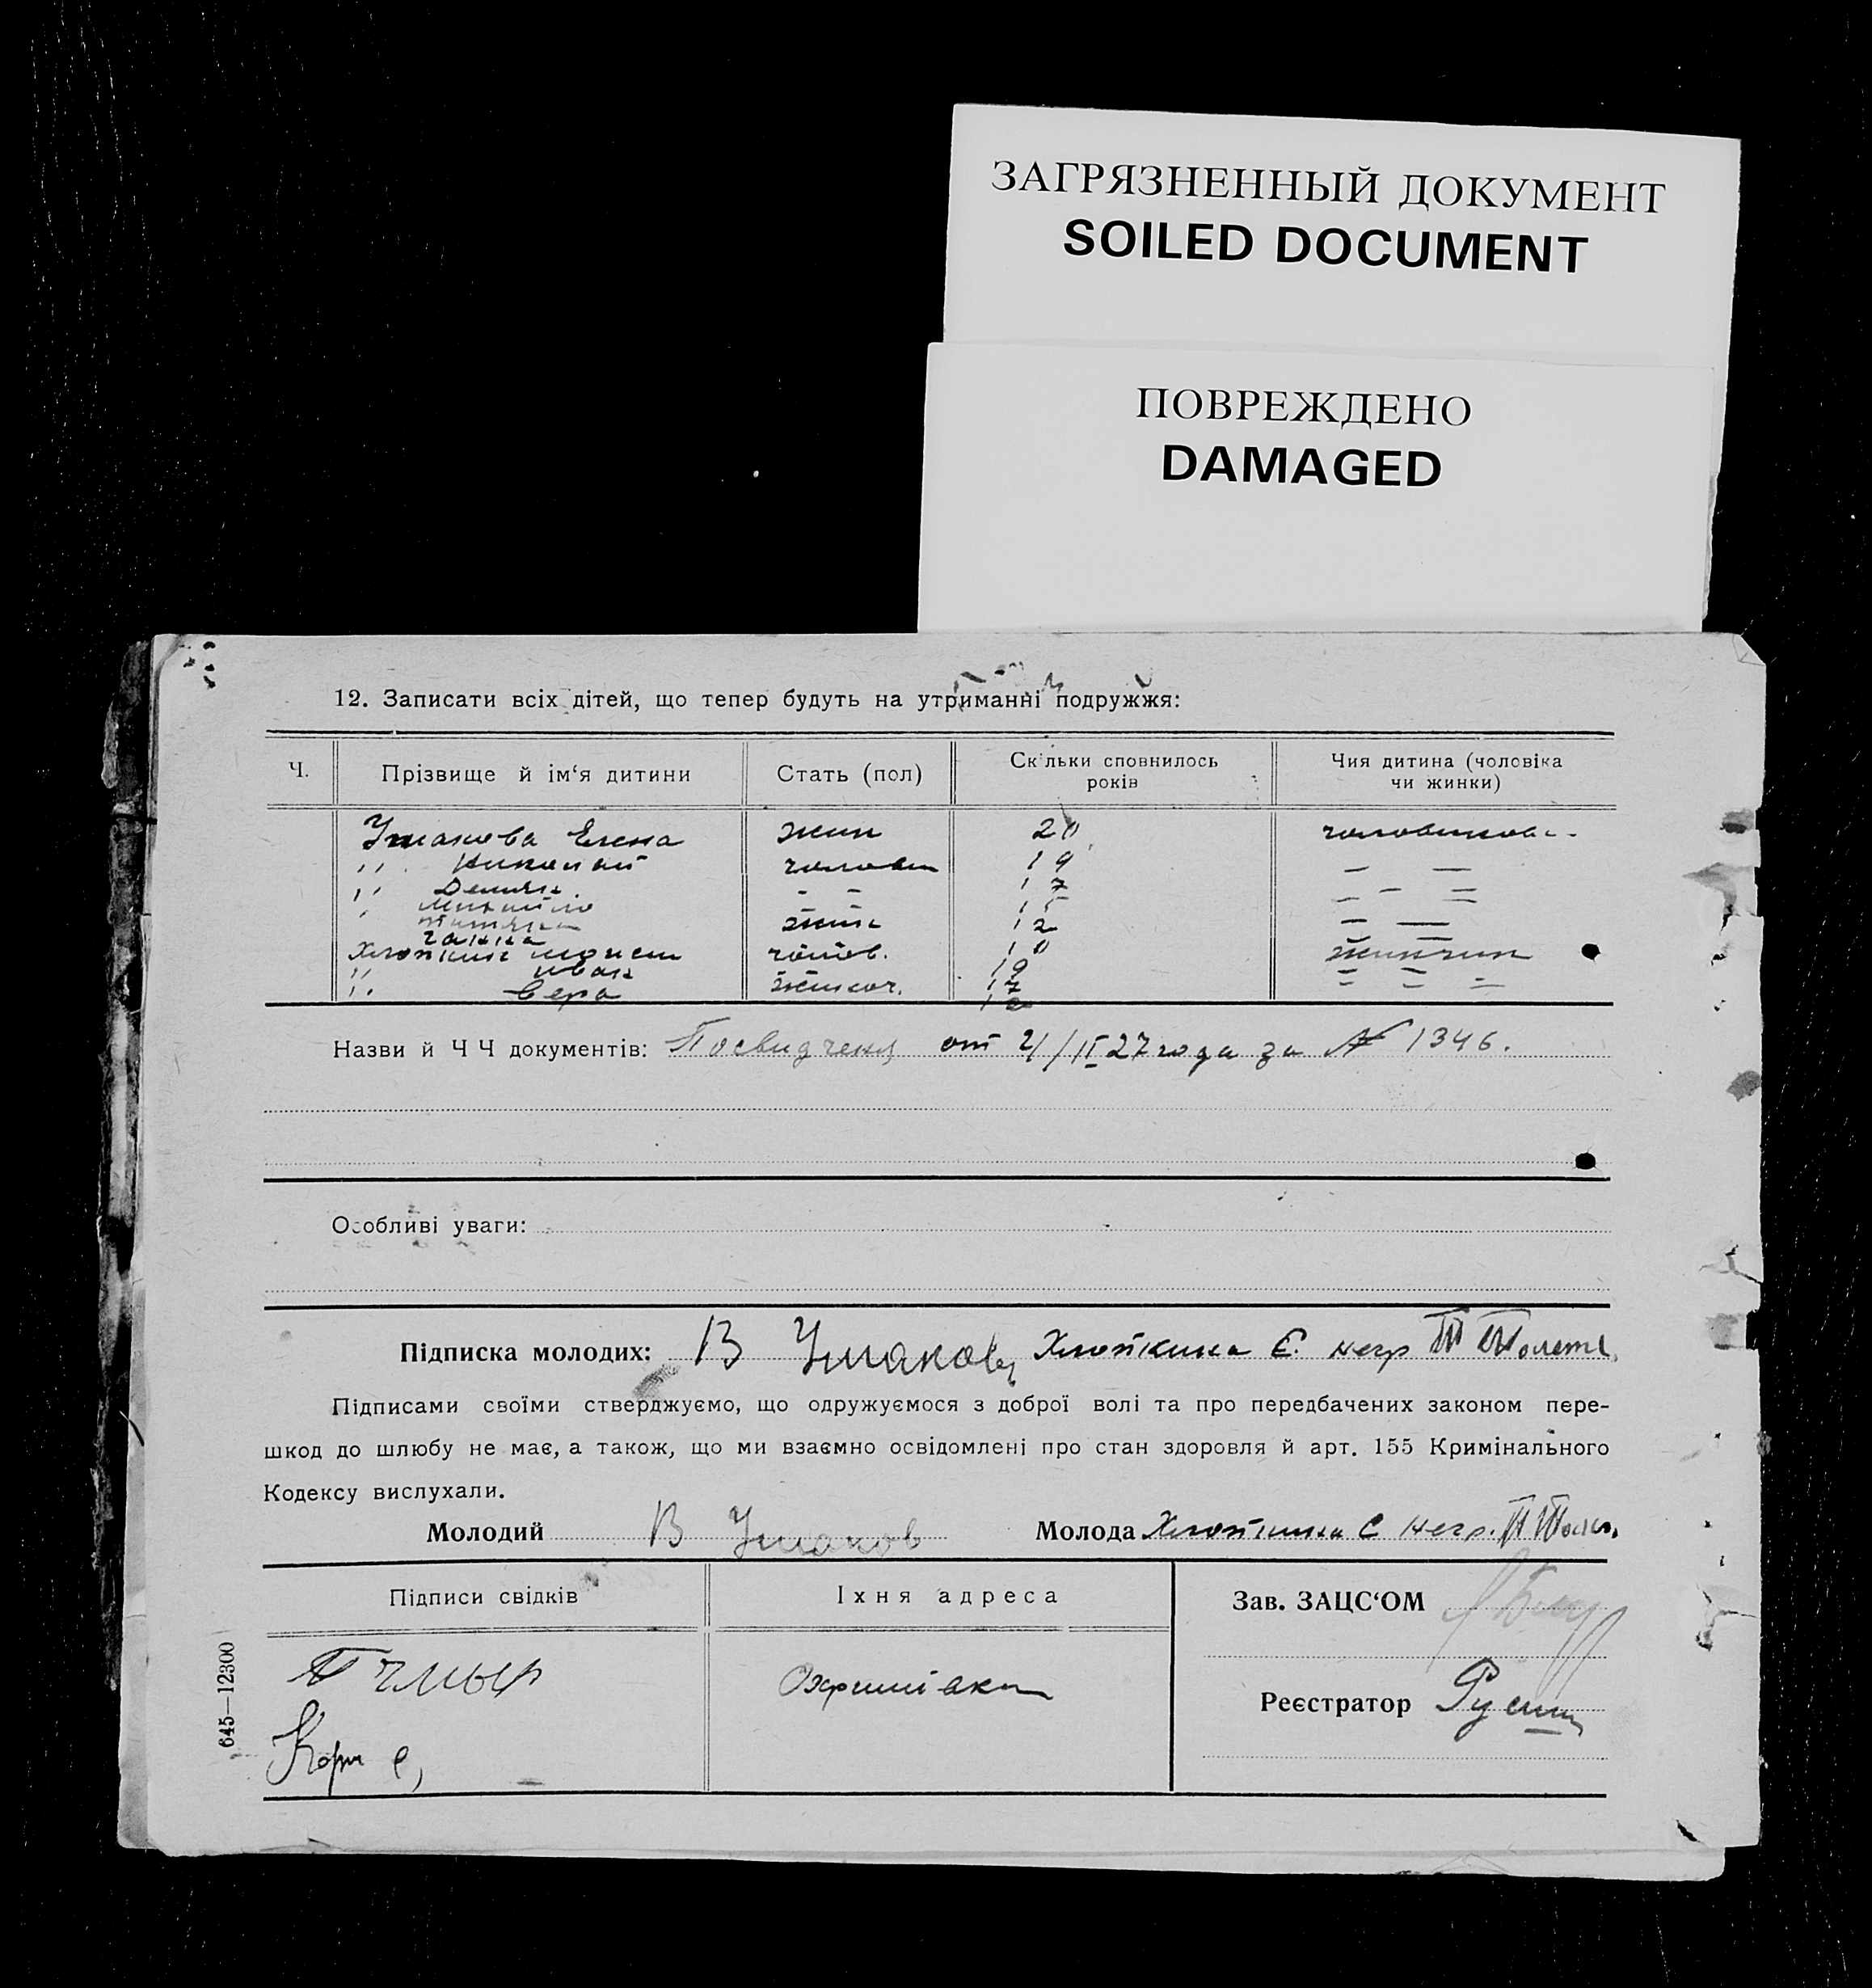 ЗАГРЯЗНЕННЫЙ ДОКУМЕНТ
SOILED DOCUMENT
ПОВРЕЖДЕНО
DAMAGED
12. Записати всіх дітей, що тепер будуть на утриманні подружжя:
Ч. Прізвище й ім‘я дитини Стать (пол) Скільки сповнилось років Чия дитина (чоловіка чи жинки)
Ушакова Елена жин 20
,, Николай 19 — —
,, 17 — — —
Михайло 15 — —
жин 12 — —
Ганна 10
Хлопкин чолов.
,, Иван 19 — — —
,, Вера 17
Назви й Ч Ч документів: Посвидченя от 21/II 27 года за № 1346.
Особливі уваги:
Підписка молодих: В Ушаков Хлопкина Є. негр П
Підписами своїми стверджуємо, що одружуємося з доброї волі та про передбачених законом пере-
шкод до шлюбу не має, а також, що ми взаємно освідомлені про стан здоровля й арт. 155 Кримінального
Кодексу вислухали.
Молодий В Ушаков Молода Хлопкина Є негр. П
Підписи свідків Їхня адреса Зав. ЗАЦС‘ОМ
Реєстратор
645—12300